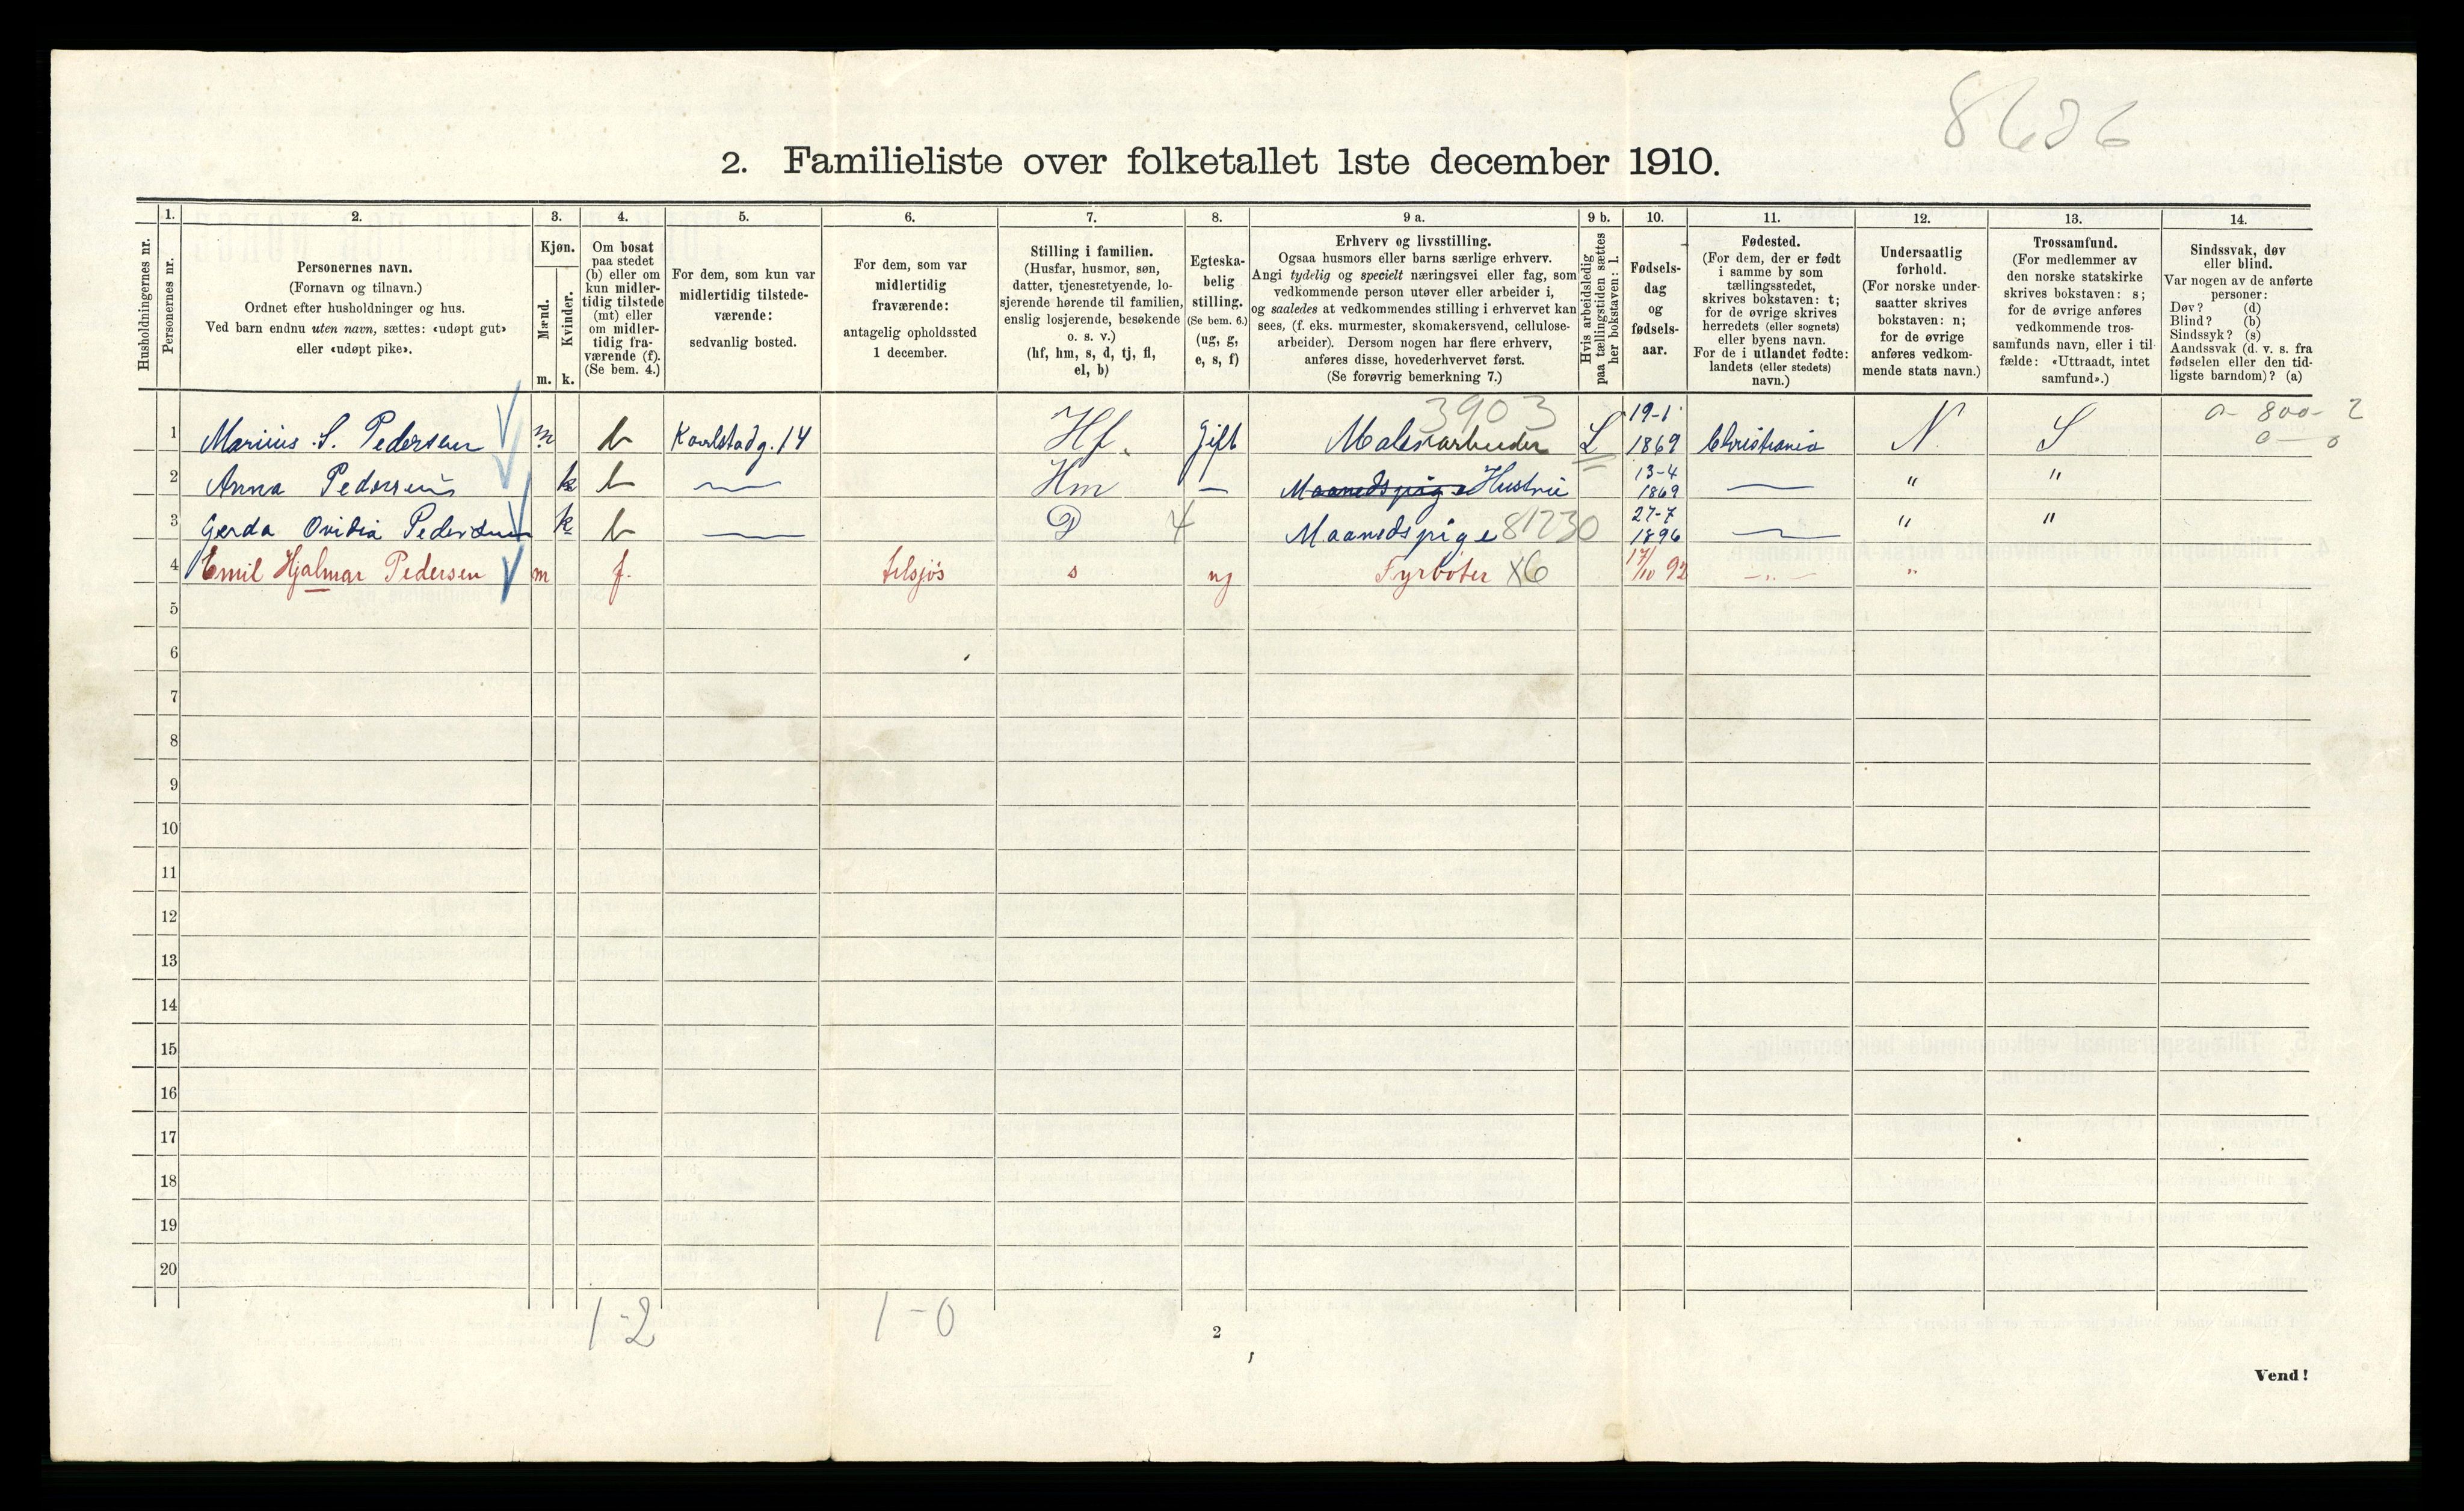 8626
2. Familieliste over folketallet 1ste december 1910.
Husholdningernes nr.
1.
Personernes nr.
2.
Personernes navn.
(Fornavn og tilnavn.)
Ordnet efter husholdninger og hus.
Ved barn endnu uten navn, sættes: «udøpt gut»
eller «udøpt pike».
3.
Kjøn.
Mænd.
Kvinder.
m. k.
4.
Om bosat
paa stedet
(b) eller om
kun midler-
tidig tilstede
(mt) eller
om midler-
tidig fra-
værende (f).
(Se bem. 4.)
5.
For dem, som kun var
midlertidig tilstede-
værende:
sedvanlig bosted.
6.
For dem, som var
midlertidig
fraværende:
antagelig opholdssted
1 december.
7.
Stilling i familien.
(Husfar, husmor, søn,
datter, tjenestetyende, lo-
sjerende hørende til familien,
enslig losjerende, besøkende
o. s. v.)
(hf, hm, s, d, tj, fl,
el, b)
8.
Egteska-
belig
stilling.
(Se bem. 6.)
(ug, g,
e, s, f)
9 a.
Erhverv og livsstilling.
Ogsaa husmors eller barns særlige erhverv.
Angi tydelig og specielt næringsvei eller fag, som
vedkommende person utøver eller arbeider i,
og saaledes at vedkommendes stilling i erhvervet kan
sees, (f. eks. murmester, skomakersvend, cellulose-
arbeider). Dersom nogen har flere erhverv,
anføres disse, hovederhvervet først.
(Se forøvrig bemerkning 7.)
9 b.
Hvis arbeidsledig
paa tællingstiden sættes
her bokstaven: l.
10.
Fødsels-
dag
og
fødsels-
aar.
11.
Fødested.
(For dem, der er født
i samme by som
tællingsstedet,
skrives bokstaven: t;
for de øvrige skrives
herredets (eller sognets)
eller byens navn.
For de i utlandet fødte:
landets (eller stedets)
navn.)
12.
Undersaatlig
forhold.
(For norske under-
saatter skrives
bokstaven: n;
for de øvrige
anføres vedkom-
mende stats navn.)
13.
Trossamfund.
(For medlemmer av
den norske statskirke
skrives bokstaven: s;
for de øvrige anføres
vedkommende tros-
samfunds navn, eller i til-
fælde: «Uttraadt, intet
samfund».)
14.
Sindssvak, døv
eller blind.
Var nogen av de anførte
personer:
Døv? (d)
Blind? (b)
Sindssyk? (s)
Aandssvak (d. v. s. fra
fødselen eller den tid-
ligste barndom)? (a)
3903
0 - 800 - 2
0 - 0
1 Marius S. Pedersen m b Karlstadg. 14 Hf. Gift Malerarbeider L 19-1 1869 Christiania N. S
2 Anna Pedersen k b Hm — Maanedspige Hustru 13-4 1869 — " "
3 Gerda Ovidia Pedersen k b D 4 Maanedspige 81230 27-7 1896 — " "
4 Emil Hjalmar Pedersen m f. tilsjøs s ug Fyrbøter X6 17/10 92 —"— "
5
6
7
8
9
10
11
12
13
14
15
16
17
18
19
20
1-2
1-0
2
Vend!